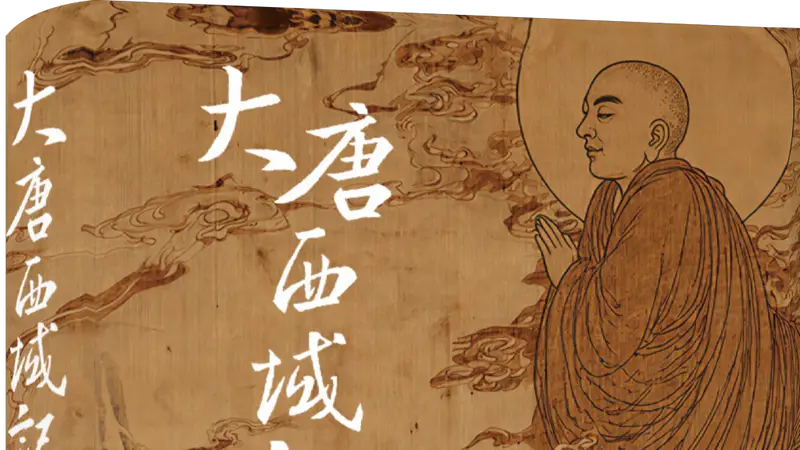 大唐西域
大唐西域